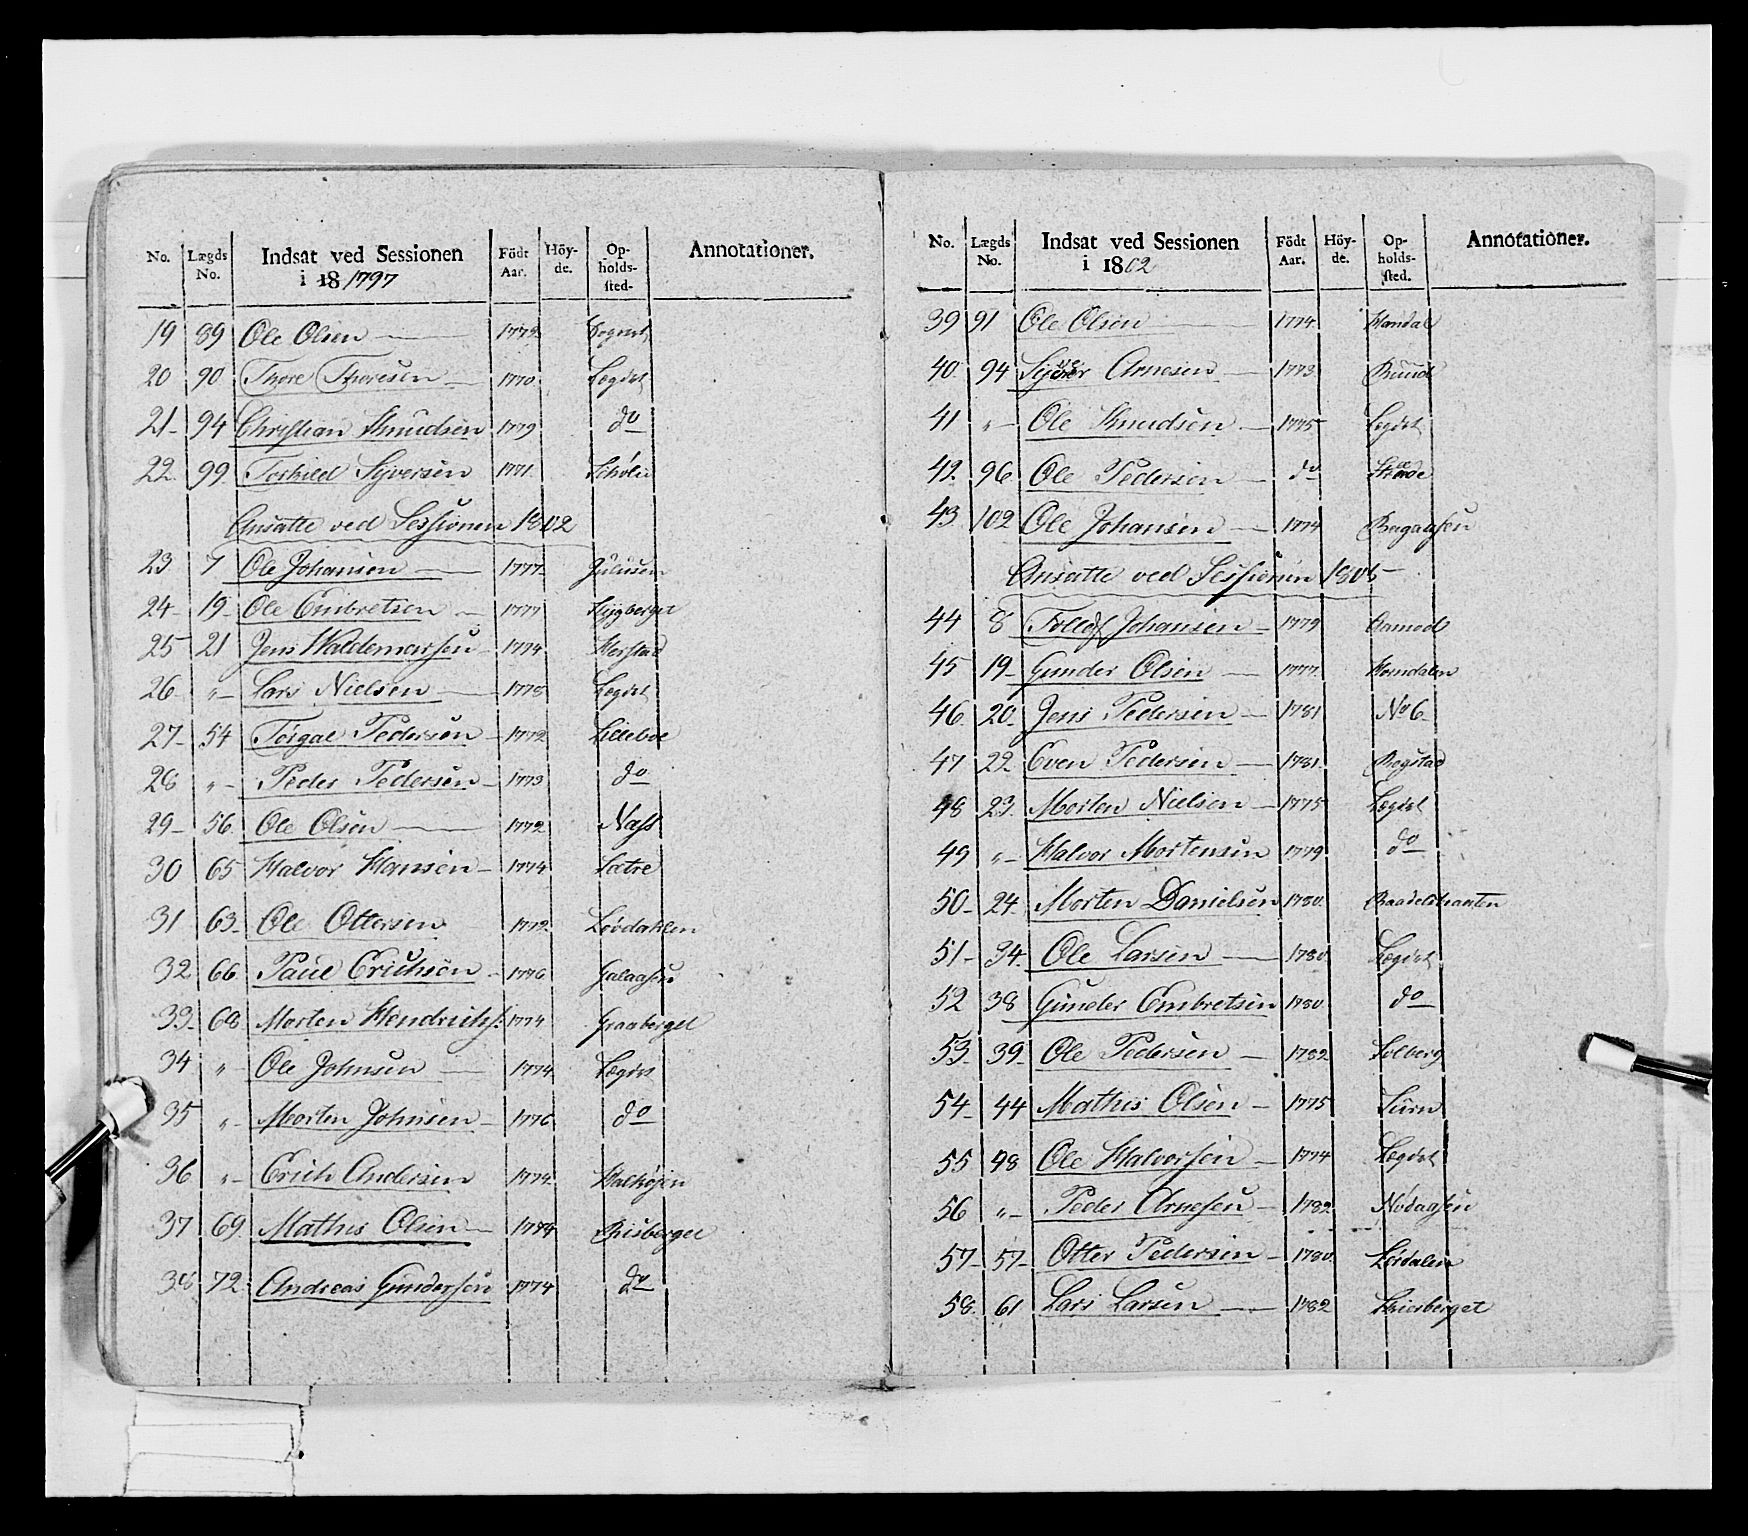 No. Lægds No. Indsat ved Sessionen i 181797 Födt Aar. Höyde. Opholdssted. Annotationer.
19 89 Ole Olsen 1772
20 90 Thore Thoresen 1770 Lægdet
21 94 Christian Knudsen 1779 do
22 99 Torkild Syversen 1771
Ansatte ved Sessionen 1802
23 7 Ole Johansen 1777 Julusen
24 19 Ole Embretsen 1777 Skygberget
25 21 Jens Waldemarsen 1774 Herstad
26 "- Lars Nielsen 1778 Lægdet
27 54 Torgal Pedersen 1772 Lilleboe
28 "- Peder Pedersen 1773 do
29 56 Ole Olsen 1772 Næss
30 65 Halvor Hansen 1774 Sætre
31 63 Ole Ottersen 1772 Løvdahlen
32 66 Paul Erichsen 1776 Galaasen
33 68 Morten Hendrichs: 1774 Graaberget
34 " Ole Johnsen 1774 Lægdet
35 "- Morten Johnsen 1776 do
36 "- Erich Andersen 1774 Kalhøjen
37 69 Mathis Olsen 1774 Riisberget
38 72 Andreas Gundersen 1774 do
No. Lægds No. Indsat ved Sessionen i 1802 Födt Aar. Höyde. Opholdssted. Annotationer.
39 91 Ole Olsen 1774
40 94 Arnesen 1773
41 "- Ole Knudsen 1775 Lægdet
42 96 Ole Pedersen do
43 102 Ole Johansen 1774 Bergaasen
Ansatte ved Sessionen 1805
44 8 Tollef Johansen 1779 Aamod
45 19 Gunder Olsen 1777 Horndalen
46 20 Jens Pedersen 1781 No 6
47 22 Even Pedersen 1781 Rogstad
48 23 Morten Nielsen 1775 Lægdet
49 "- Halvor Mortensen 1779 do
50 24 Morten Danielsen 1780
51 34 Ole Larsen 1780 Lægdet
52 38 Gunder Embretsen 1780 do
53 39 Ole Pedersen 1782 Solberg
54 44 Mathis Olsen 1775
55 48 Ole Halvorsen 1774 Lægdet
56 "- Peder Arnesen 1782 Nødaasen
57 57 Otter Pedersen 1780 Lørdalen
58 61 Lars Larsen 1782